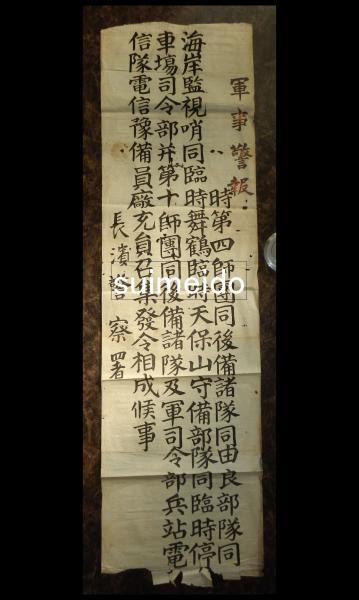 軍事警報
時第四師團同後備諸隊同由良部隊同
時舞鶴臨時天保山守備部隊同臨時停
車場司令部并第十師團同後備諸隊及軍司令部兵站電
信隊電信豫備員廠充員召集發令相成候事
海岸監視哨同臨
長濱警察署
suimeido